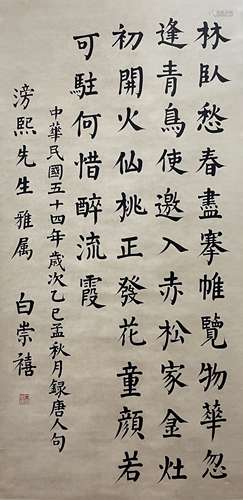 林臥愁春盡搴帷覽物華忽
逢青鳥使邀入赤松家金灶
初開火仙桃正發花童顏若
可駐何惜醉流霞
中華民國五十四年歲次乙巳孟秋月録唐人句
滂熙先生雅属
白崇禧